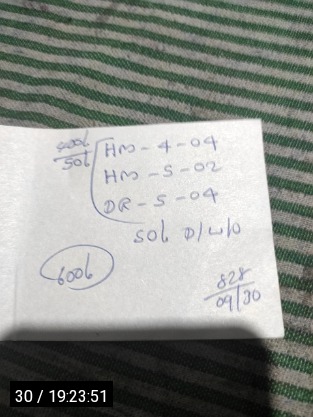 400l
50l
HM - 4 - 04
HM - 5 - 02
DR - 5 - 04
50l D/w/o
600l
828
09/30
30 / 19:23:51